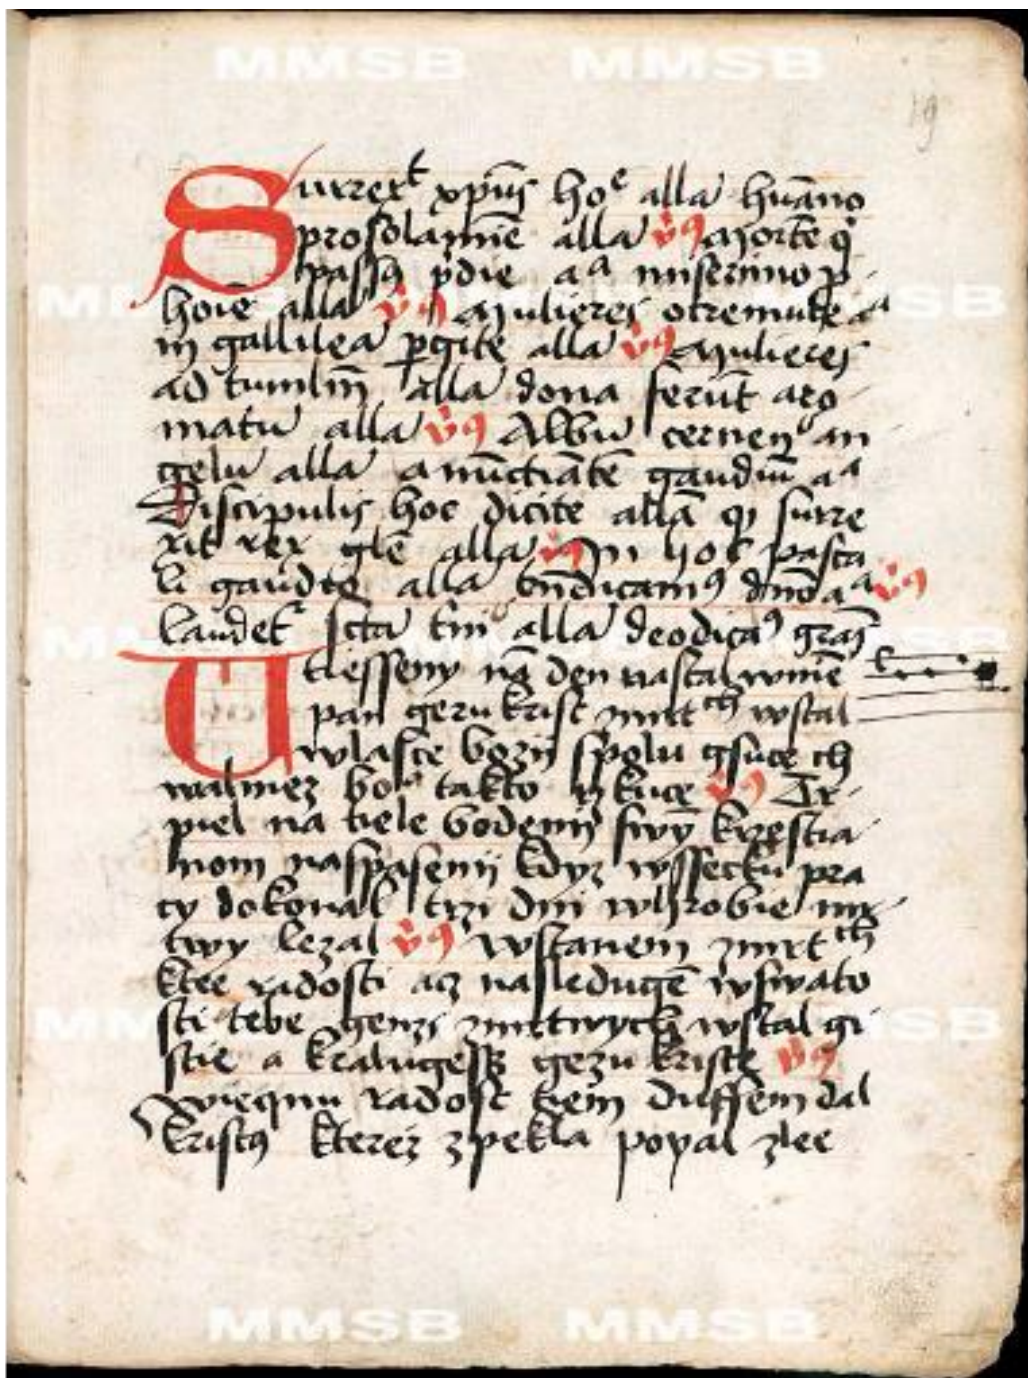 MMSB MMSB
19
Surrext xpūs hoe alla hūano
pro solamīe alla v9 Morte q
pass9 pdie aa miserimo p
hoīe alla v9 Mulieres o tremule aa
in gallilea pgite alla v9 Mulieres
ad tumlm alla dona ferūt aro
matū alla v9 Albū cernen9 an
gelū alla anūctiātē gaudiū aa
Discipulis hoc dicite alla qz surre
xit rex glē alla v9 In hoc pasca
li gaudio alla bndicam9 dnō aa v9
laudetr scta tni9 alla deo dica9 gras
Utiesseny nā den nastal wnīē
pan gezu krist zmrtch wstal
wlasce bozij spolu gsuce ch
walmez boa takto rzkuce v9 Tr
piel na tiele bodenij swȳ krzestia
nom naspasenij kdyz wssecku pra
cy dokonal trzi dni whrobie mr
twy lezal v9 Wstanem zmrtch
ktee radosti acz nasledugē wswato
sti tebe genz zmrtwych wstal gi
stie a kralugess gezu kriste v9
Wiecznu radost tiem dussem dal
krist9 kterez zpekla poyal zlee
MMSB MMSB